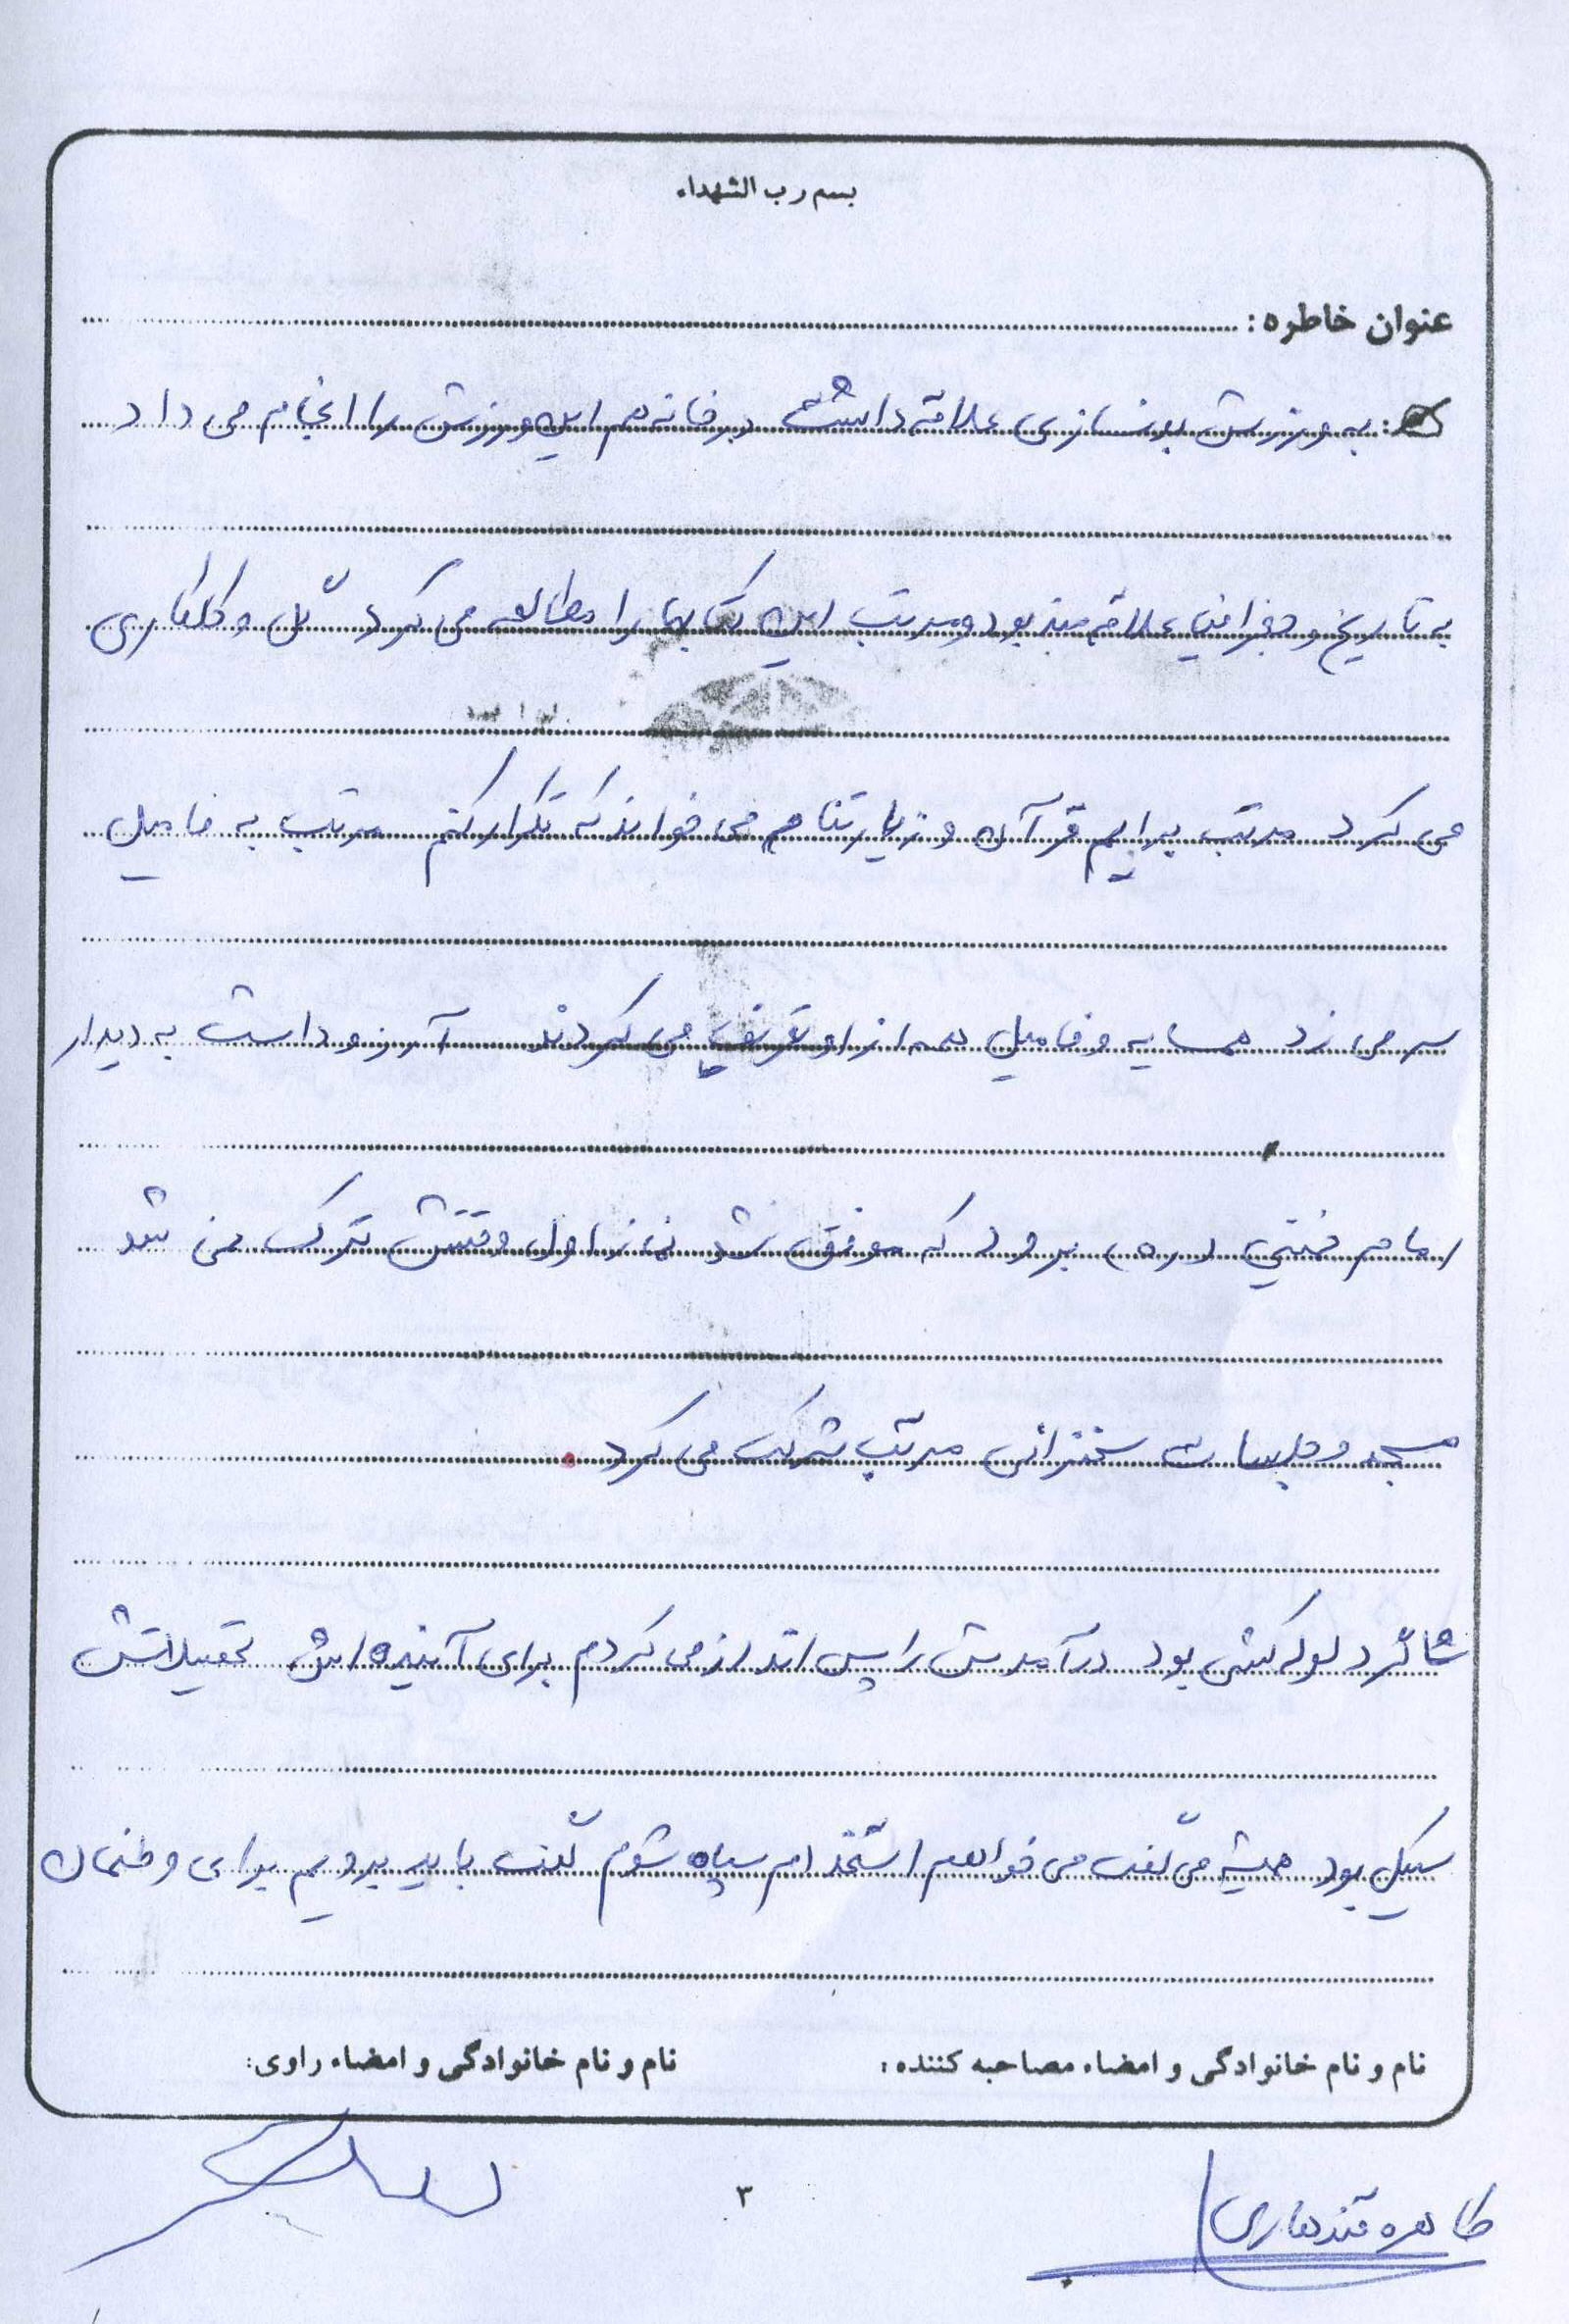 بسم رب الشهداء
عنوان خاطره:
: به ورزش بدنسازی علاقه داشت در خانه هم این ورزش را انجام می داد
به تاریخ و جغرافیا علاقه مند بود و مرتب این کتابها را مطالعه می کرد گل و گلکاری
می کرد مرتب برایم قرآن و زیارتنامه می خواند که تکرار کنم مرتب به فامیل
سر می زد همسایه و فامیل همه از او تعریف می کردند آرزو داشت به دیدار
امام خمینی (ره) برود که موفق نشد نماز اول وقتش ترک نمی شد
مسجد و جلسات سخنرانی مرتب شرکت می کرد.
شاگرد لوله کشی بود درآمدش را پس انداز می کردم برای آینده اش تحصیلاتش
سیکل بود همیشه می گفت می خواهم استخدام سپاه شوم گفت باید برویم برای وطنمان
نام و نام خانوادگی و امضاء مصاحبه کننده: نام و نام خانوادگی و امضاء راوی:
طاهره قندهاری
۳